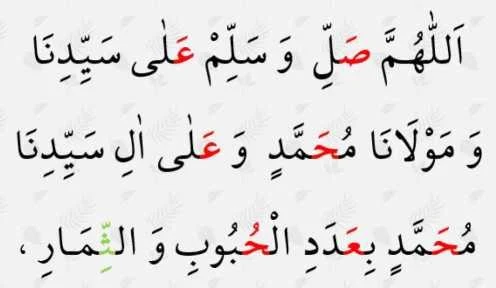 اَللّٰهُمَّ صَلِّ وَ سَلِّمْ عَلٰى سَيِّدِنَا
وَ مَوْلَانَا مُحَمَّدٍ وَ عَلٰى اٰلِ سَيِّدِنَا
مُحَمَّدٍ بِعَدَدِ الْحُبُوبِ وَ الثِّمَارِ ،